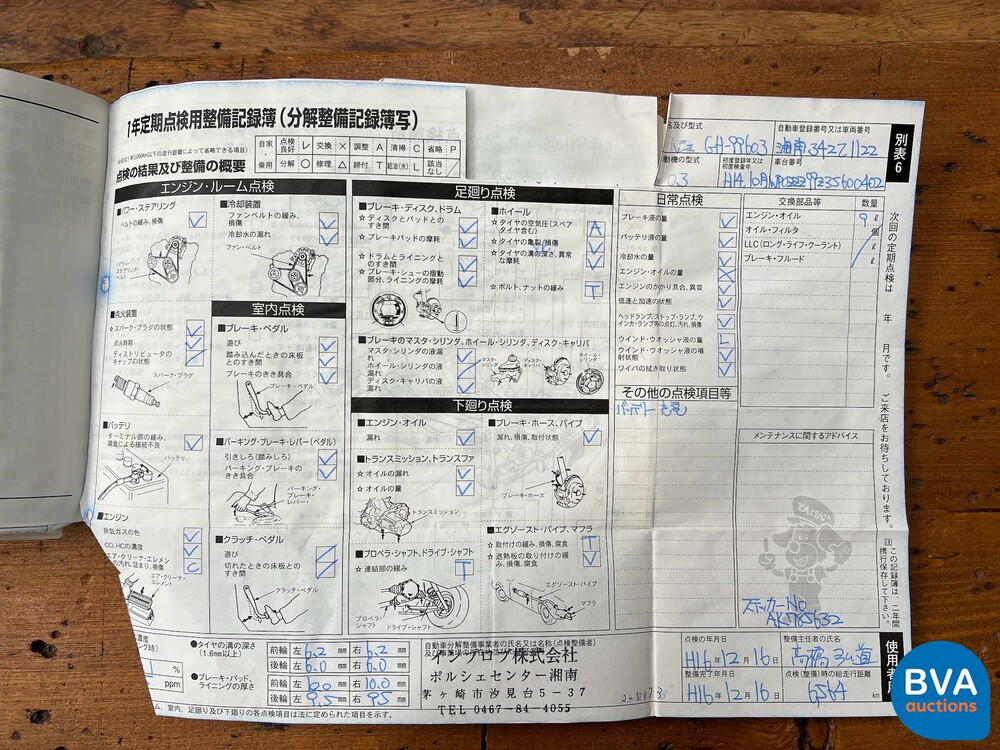 1年定期点検用整備記録簿(分解整備記録簿写)
点検の結果及び整備の概要
自家 点検良好 レ 交換 × 調整 A 清掃 C 省略 P
乗用 分解 ○ 修理 △ 締付 T 給油(水) L 該当なし /
名及び型式
GH-99603
自動車登録番号又は車両番号
湘南342 1122
初度登録年又は初度検査年
車台番号
別表6
エンジン・ルーム点検
■パワー・ステアリング
ベルトの緩み、損傷
パワー・ステアリング・ベルト
■冷却装置
ファンベルトの緩み、損傷
冷却水の漏れ
ファン・ベルト
■点火装置
☆スパーク・プラグの状態
点火時期
ディストリビュータのキャップの状態
スパーク・プラグ
■バッテリ
ターミナル部の緩み、腐食による接続不良
バッテリ
■エンジン
排気ガスの色
CO、HCの濃度
エア・クリーナ・エレメントの汚れ、詰まり、損傷
エア・クリーナ・エレメント
室内点検
■ブレーキ・ペダル
遊び
踏み込んだときの床板とのすき間
ブレーキのきき具合
ブレーキ・ペダル
■パーキング・ブレーキ・レバー(ペダル)
引きしろ(踏みしろ)
パーキング・ブレーキのきき具合
パーキング・ブレーキ・レバー
■クラッチ・ペダル
遊び
切れたときの床板とのすき間
クラッチ・ペダル
足廻り点検
■ブレーキ・ディスク、ドラム
☆ディスクとパッドとのすき間
☆ブレーキパッドの摩耗
☆ドラムとライニングとのすき間
☆ブレーキ・シューの摺動部分、ライニングの摩耗
■ホイール
☆タイヤの空気圧(スペアタイヤ含む) A
☆タイヤの亀裂、損傷
☆タイヤの溝の深さ、異常な摩耗
☆ボルト、ナットの緩み T
■ブレーキのマスタ・シリンダ、ホイール・シリンダ、ディスク・キャリパ
マスタ・シリンダの液漏れ
ホイール・シリンダの液漏れ
ディスク・キャリパの液漏れ
マスタ・シリンダ
ディスク・キャリパ
ホイール・シリンダ
下廻り点検
■エンジン・オイル
漏れ
■トランスミッション、トランスファ
☆オイルの漏れ
☆オイルの量
トランスミッション
■プロペラ・シャフト、ドライブ・シャフト
☆連結部の緩み T
プロペラ・シャフト
ドライブ・シャフト
■ブレーキ・ホース、パイプ
漏れ、損傷、取付状態
ブレーキ・ホース
■エグゾースト・パイプ、マフラ
☆取付けの緩み、損傷、腐食 T
☆遮熱板の取り付けの緩み、損傷、腐食
エグゾースト・パイプ
マフラ
日常点検
ブレーキ液の量
バッテリ液の量
冷却水の量
エンジン・オイルの量
エンジンのかかり具合、異音
低速と加速の状態
ヘッドランプ、ストップ・ランプ、ウインカ・ランプ等の点灯、汚れ、損傷
ウインド・ウオッシャ液の量 L
ウインド・ウオッシャ液の噴射状態
ワイパの拭き取り状態
その他の点検項目等
バッテリー充電
交換部品等 数量
エンジン・オイル 9 ℓ
オイル・フィルタ 個
LLC(ロング・ライフ・クーラント) ℓ
ブレーキ・フルード ℓ
メンテナンスに関するアドバイス
ステッカーNo
次回の定期点検は 年 月です。 ご来店をお待ちしております。
注 この記録簿は、二年間携行保存して下さい。
%
ppm
●タイヤの溝の深さ(1.6mm以上)
前輪 左 6.2 mm 右 6.2 mm
後輪 左 6.0 mm 右 6.0 mm
●ブレーキ・パッド、ライニングの厚さ
前輪 左 10.0 mm 右 10.0 mm
後輪 左 9.5 mm 右 9.5 mm
自動車分解整備事業者の氏名又は名称(点検整備者)
イングロブ株式会社
ポルシェセンター湘南
茅ヶ崎市汐見台5-37
TEL 0467-84-4055
点検の年月日
H16年12月16日
整備主任者の氏名
整備完了年月日
H16年12月16日
点検(整備)時の総走行距離
6564 km
使用者用
室内、足廻り及び下廻りの各点検項目は法に定められた項目を示す。
BVA
auctions